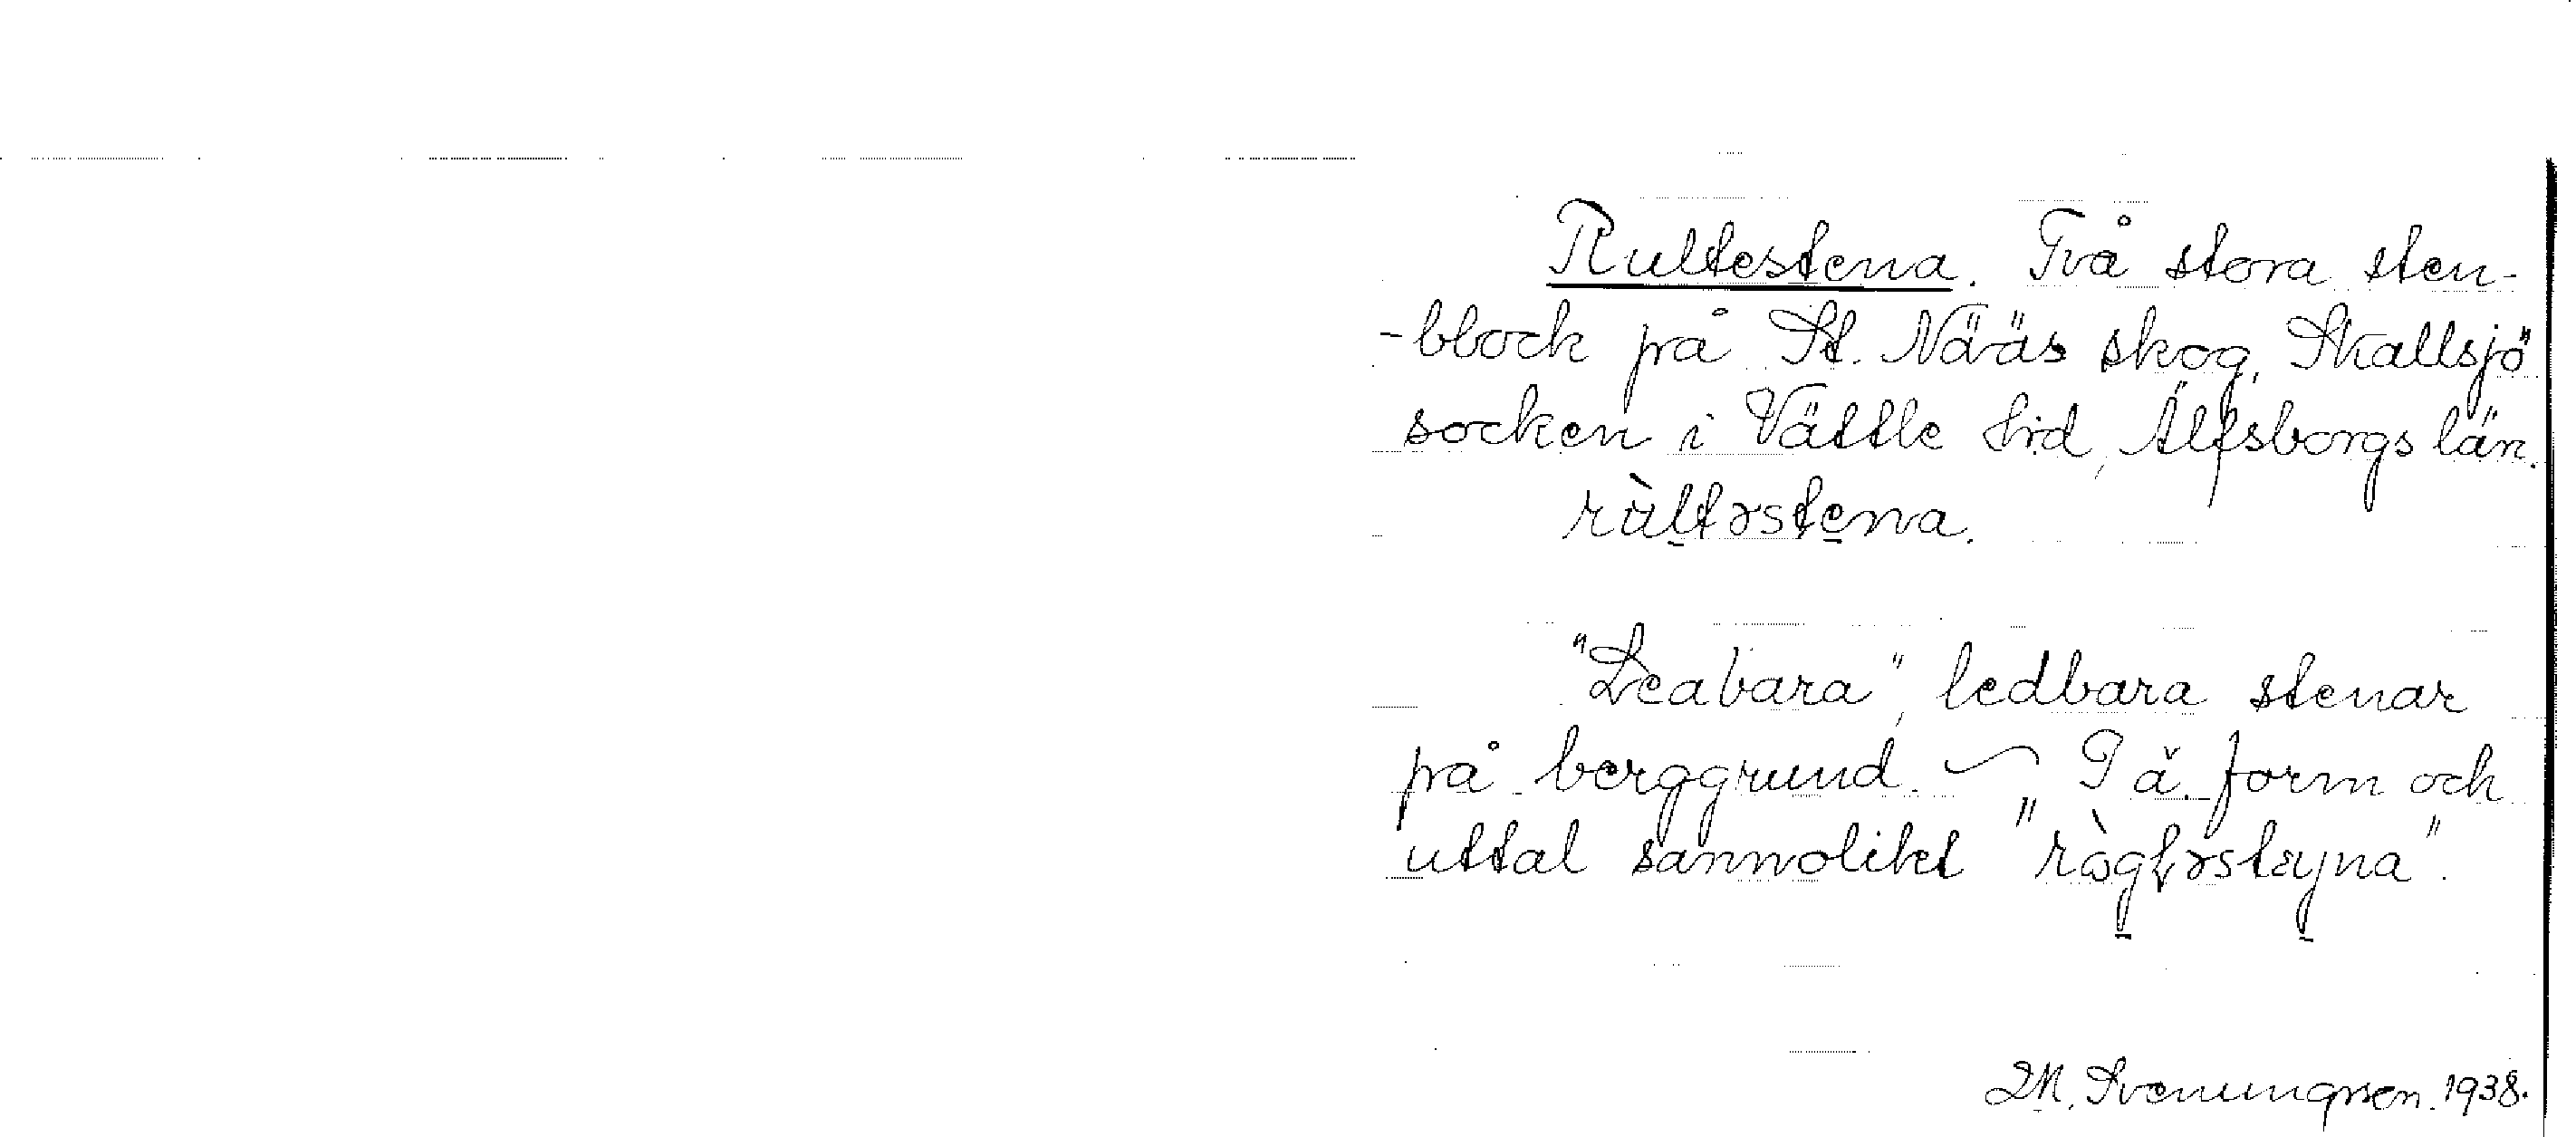 Rultestena. Två stora sten-
-block på St. Nääs skog, Skallsjö
socken i Vättle hrd, Älfsborgs län.
rùltəstena.
"Leabara", ledbara stenar
på berggrund. ~ I ä. form och
uttal sannolikt "
M. Svenungsson. 1938.